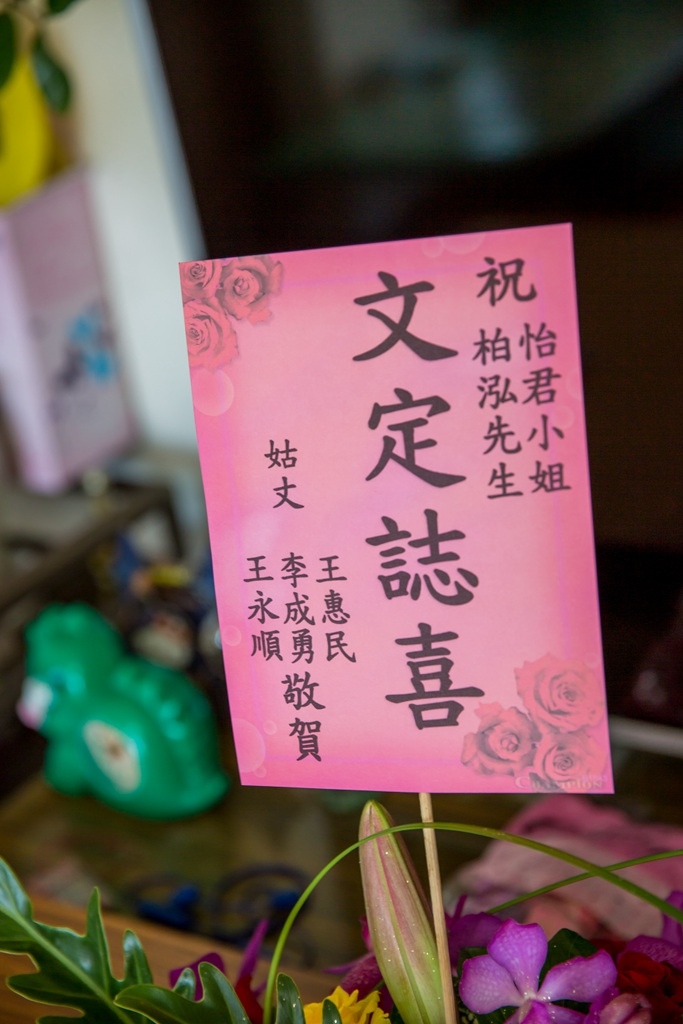 祝
怡君小姐
柏泓先生
文定誌喜
姑丈
王惠民
李成勇
王永順
敬賀